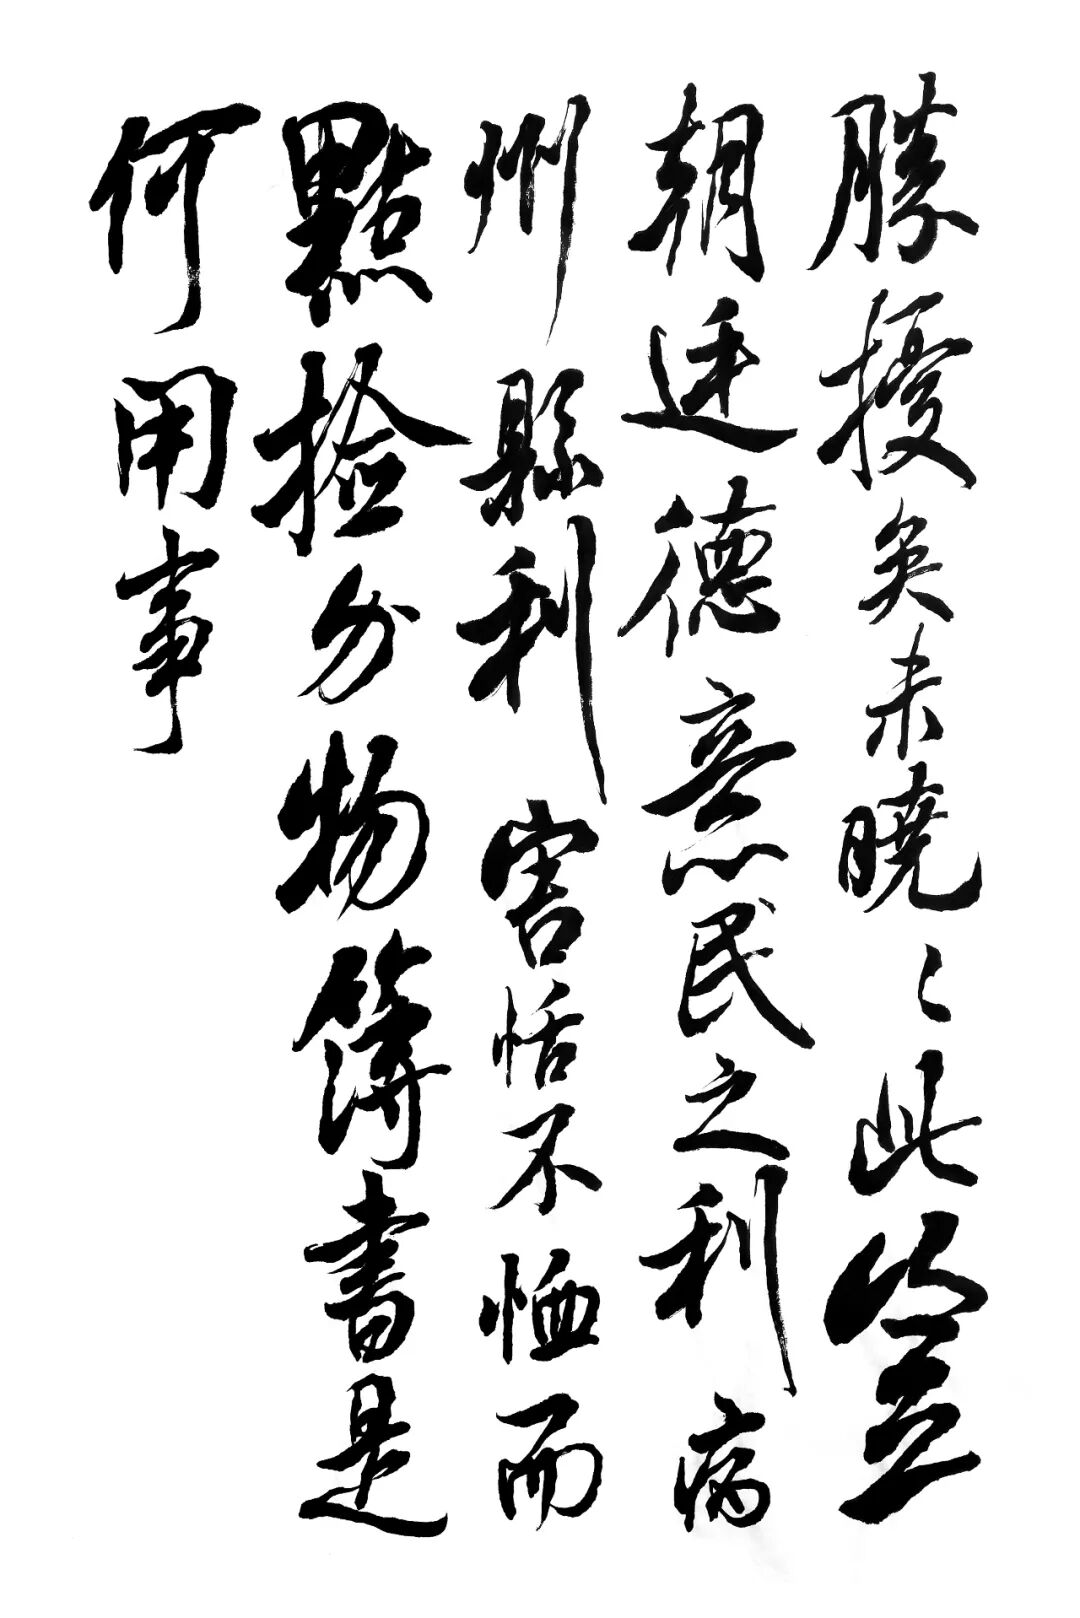 勝擾矣未曉〻〻此豈
朝廷德意民之利病
州縣利害恬不恤而
點撿外物簿書是
何用事